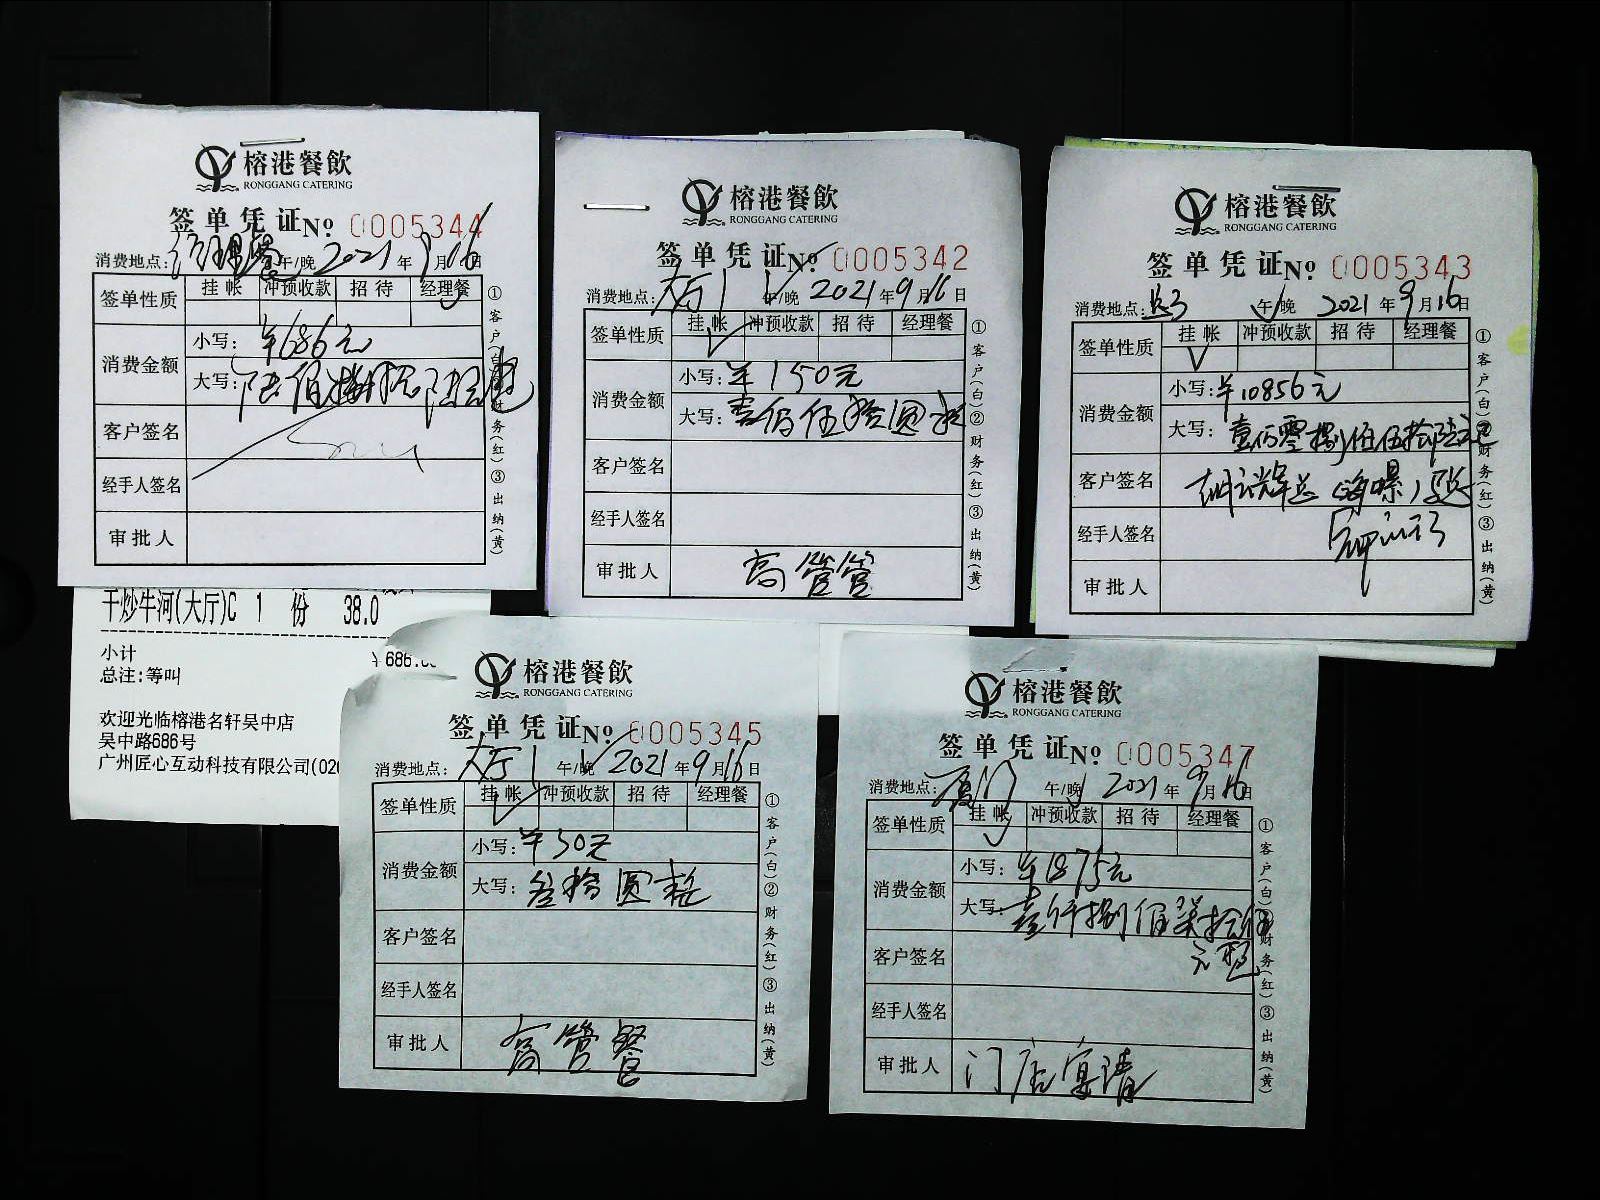 榕港餐飲
RONGGANG CATERING
签单凭证№ 0005344
消费地点: 午/晚 2021年9月16日
签单性质 挂帐 冲预收款 招待 经理餐
消费金额
小写: ¥686元
大写: 陆佰捌拾陆元
客户签名
经手人签名
审批人
①客户(白)②财务(红)③出纳(黄)
干炒牛河(大厅)C 1 份 38.0
小计 ¥686.00
总注:等叫
欢迎光临榕港名轩吴中店
吴中路686号
广州匠心互动科技有限公司(020
榕港餐飲
RONGGANG CATERING
签单凭证№ 0005342
消费地点: 大厅1 午/晚 2021年9月16日
签单性质 挂帐 冲预收款 招待 经理餐
消费金额
小写: ¥150元
大写: 壹佰伍拾圆
客户签名
经手人签名
审批人 高管餐
①客户(白)②财务(红)③出纳(黄)
榕港餐飲
RONGGANG CATERING
签单凭证№ 0005343
消费地点: 午/晚 2021年9月16日
签单性质 挂帐 冲预收款 招待 经理餐
消费金额
小写: ¥10856元
大写: 零捌佰伍拾陆元
客户签名
经手人签名
审批人
①客户(白)②财务(红)③出纳(黄)
榕港餐飲
RONGGANG CATERING
签单凭证№ 0005345
消费地点: 大厅1 午/晚 2021年9月16日
签单性质 挂帐 冲预收款 招待 经理餐
消费金额
小写: ¥30元
大写: 叁拾圆整
客户签名
经手人签名
审批人 高管餐
①客户(白)②财务(红)③出纳(黄)
榕港餐飲
RONGGANG CATERING
签单凭证№ 0005347
消费地点: 厦门 午/晚 2021年9月16日
签单性质 挂帐 冲预收款 招待 经理餐
消费金额
小写: ¥1875元
大写: 壹仟捌佰柒拾伍
元整
客户签名
经手人签名
审批人 门店宴请
①客户(白)②财务(红)③出纳(黄)